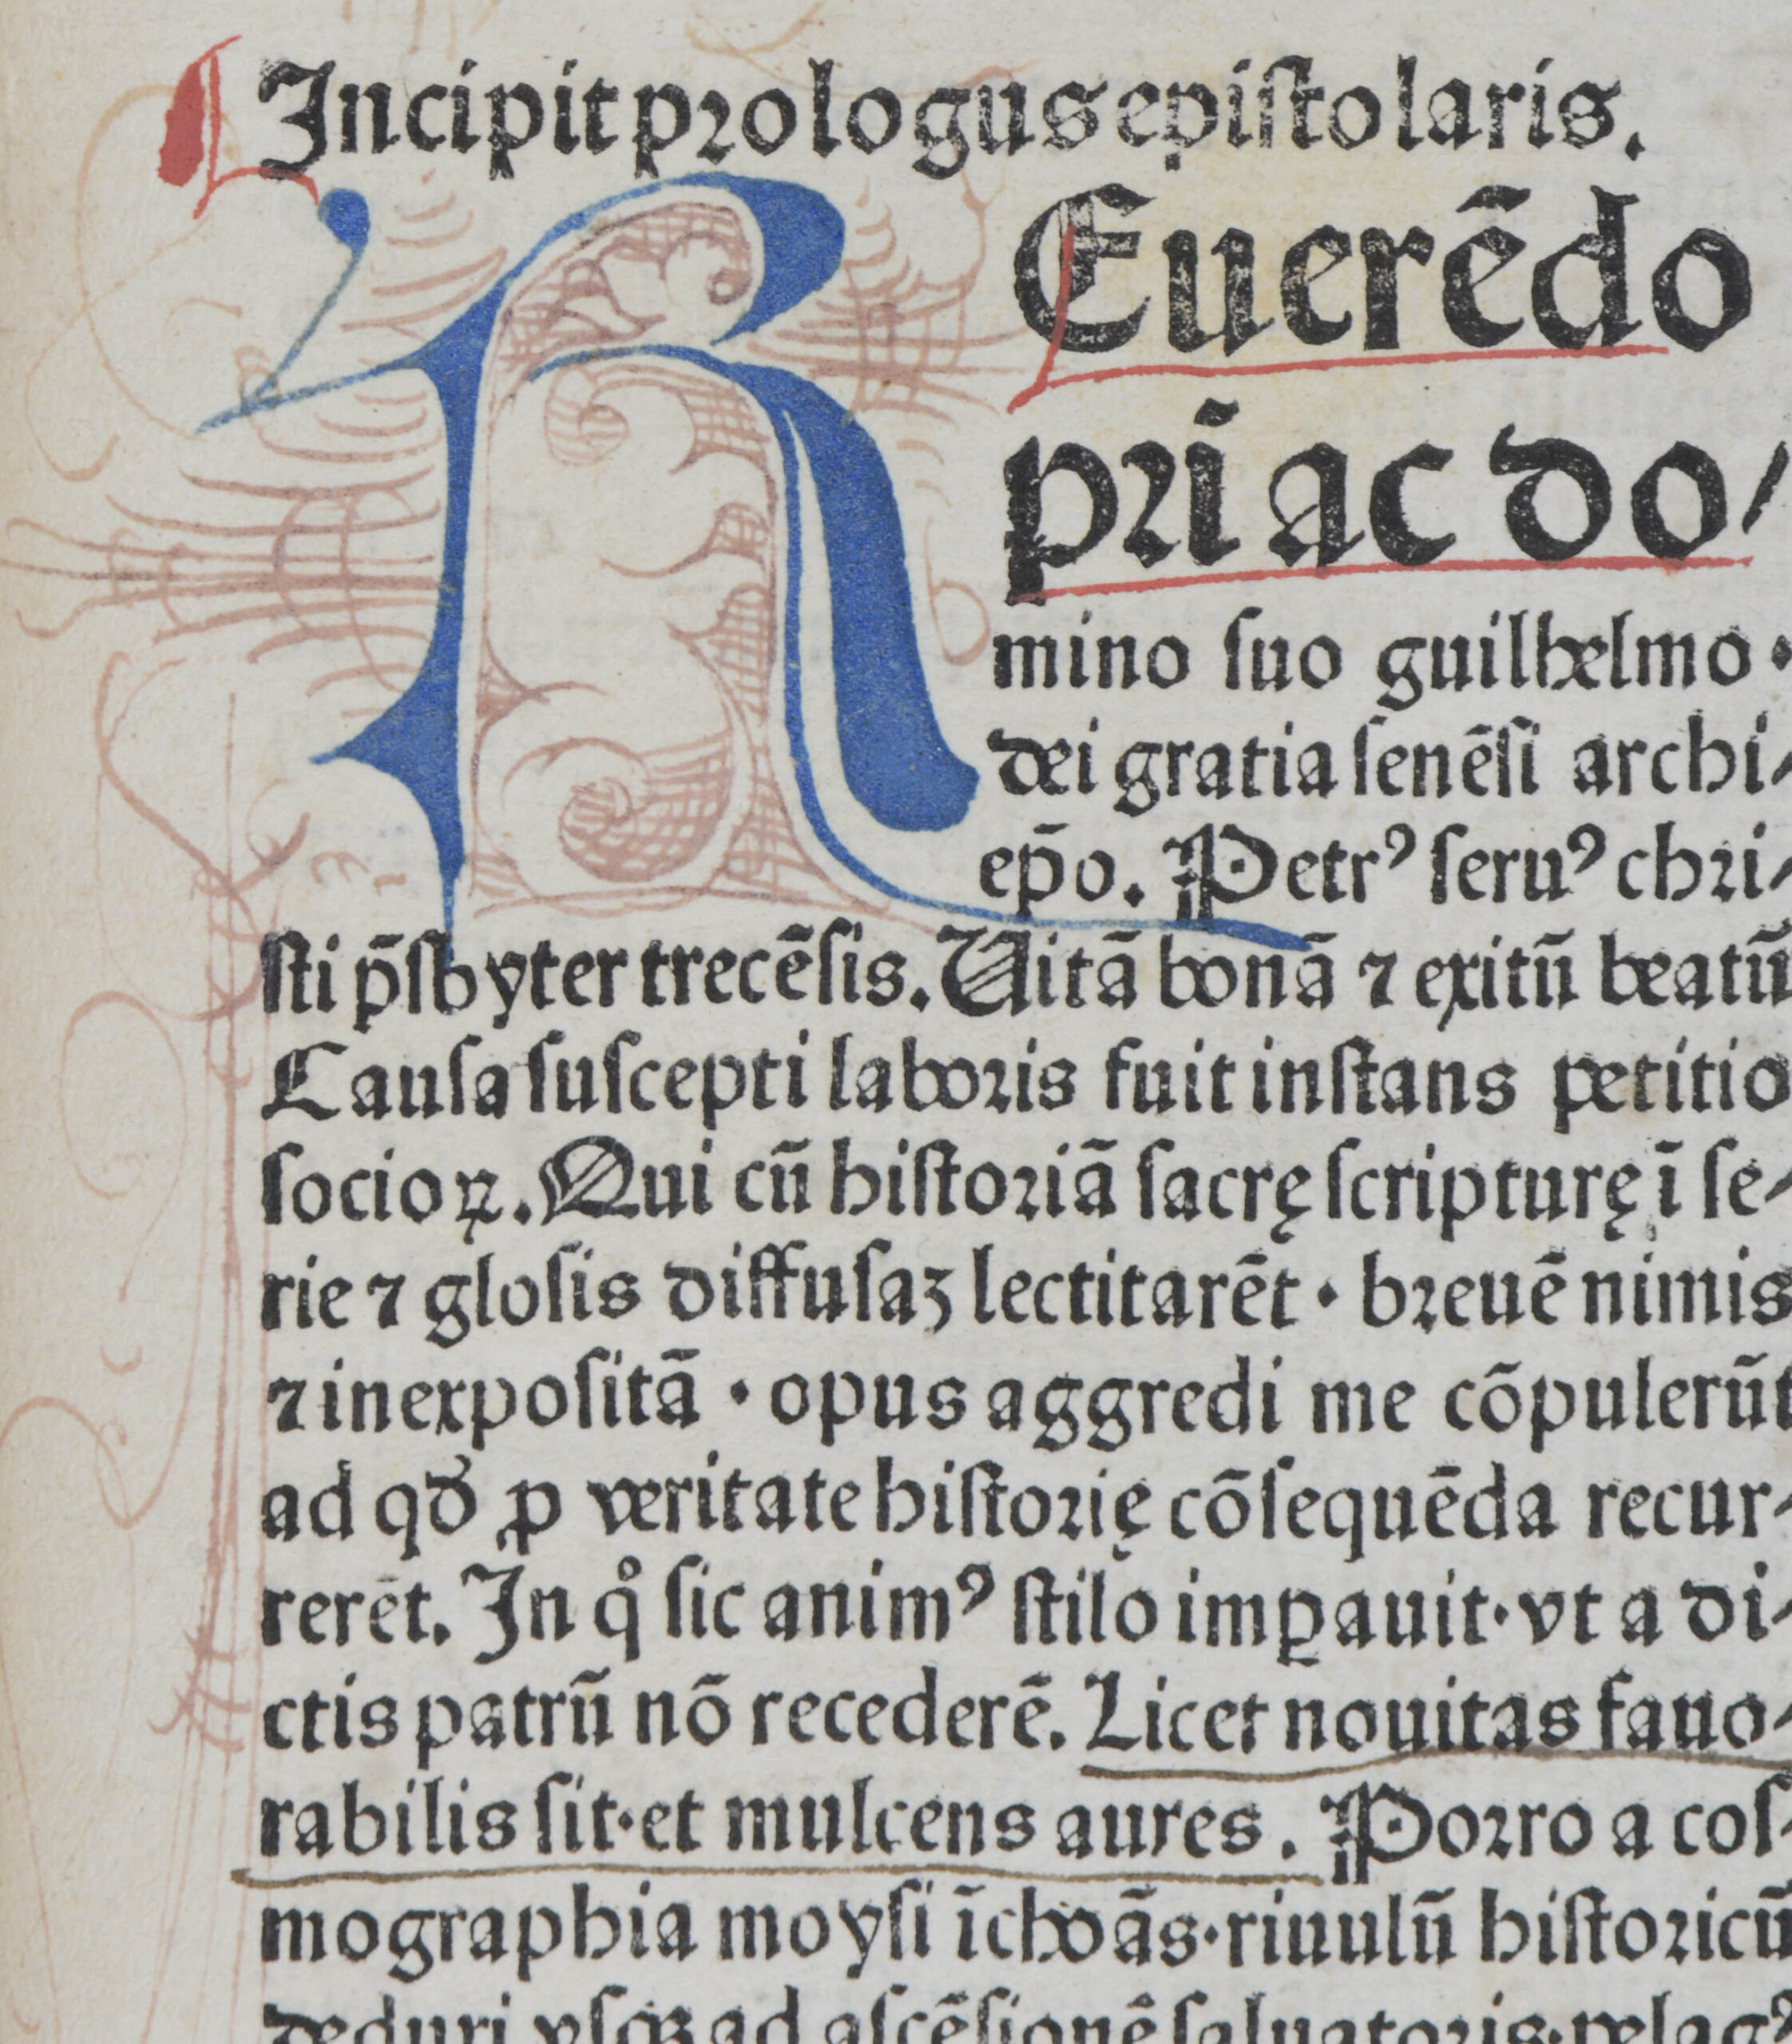 Incipit prologus epiſtolaris.
REuerēdo
pr̄i ac do/
mino ſuo guilhelmo ·
dei gratia ſenēſi archi-
ep̄o. Petrꝰ ſeruꝰ chri-
ſti p̄ſbyter trecēſis. Uitā bonā ⁊ exitū beatū
Cauſa ſuſcepti laboris fuit inſtans petitio
ſocioꝝ. Qui cū hiſtoriā ſacrę ſcripturę ī ſe-
rie ⁊ gloſis diffuſaꝫ lectitarēt · breuē nimis
⁊ inexpoſitā · opus aggredi me cōpulerūt
ad qđ ꝓ veritate hiſtorię cōſequēda recur-
rerēt. In qͦ ſic animꝰ ſtilo imꝑauit · vt a di-
ctis patrū nō recederē. Licet nouitas fauo-
rabilis ſit · et mulcens aures. Porro a coſ-
mographia moyſi īchoās · riuulū hiſtoricū
deduxi vſqꝫ ad aſcēſionē ſaluatoris · pelagꝰ